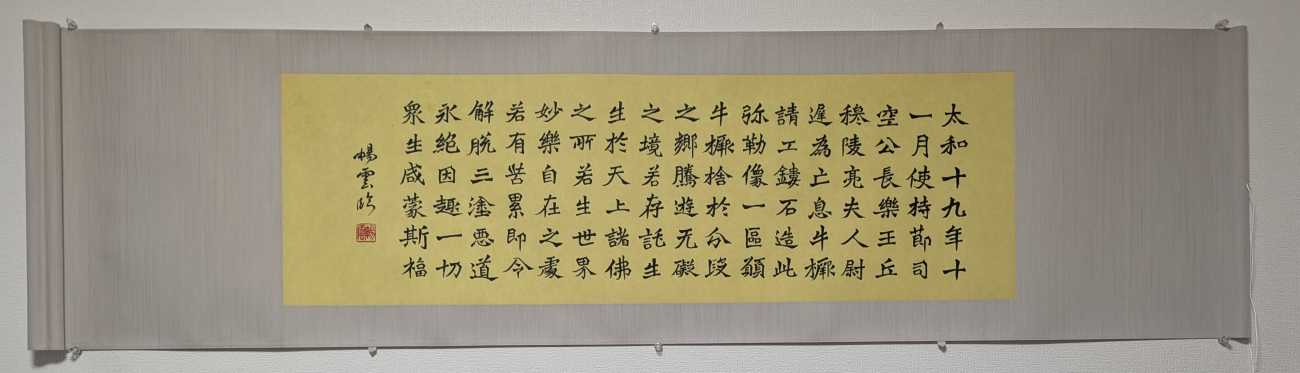 太和十九年十
一月使持節司
空公長樂王丘
穆陵亮夫人尉
遲為亡息牛橛
請工鏤石造此
弥勒像一區願
牛橛捨於分段
之鄉騰遊无礙
之境若存託生
生於天上諸佛
之所若生世界
妙樂自在之處
若有苦累即令
解脱三塗惡道
永絕因趣一切
眾生咸蒙斯福
楊雲